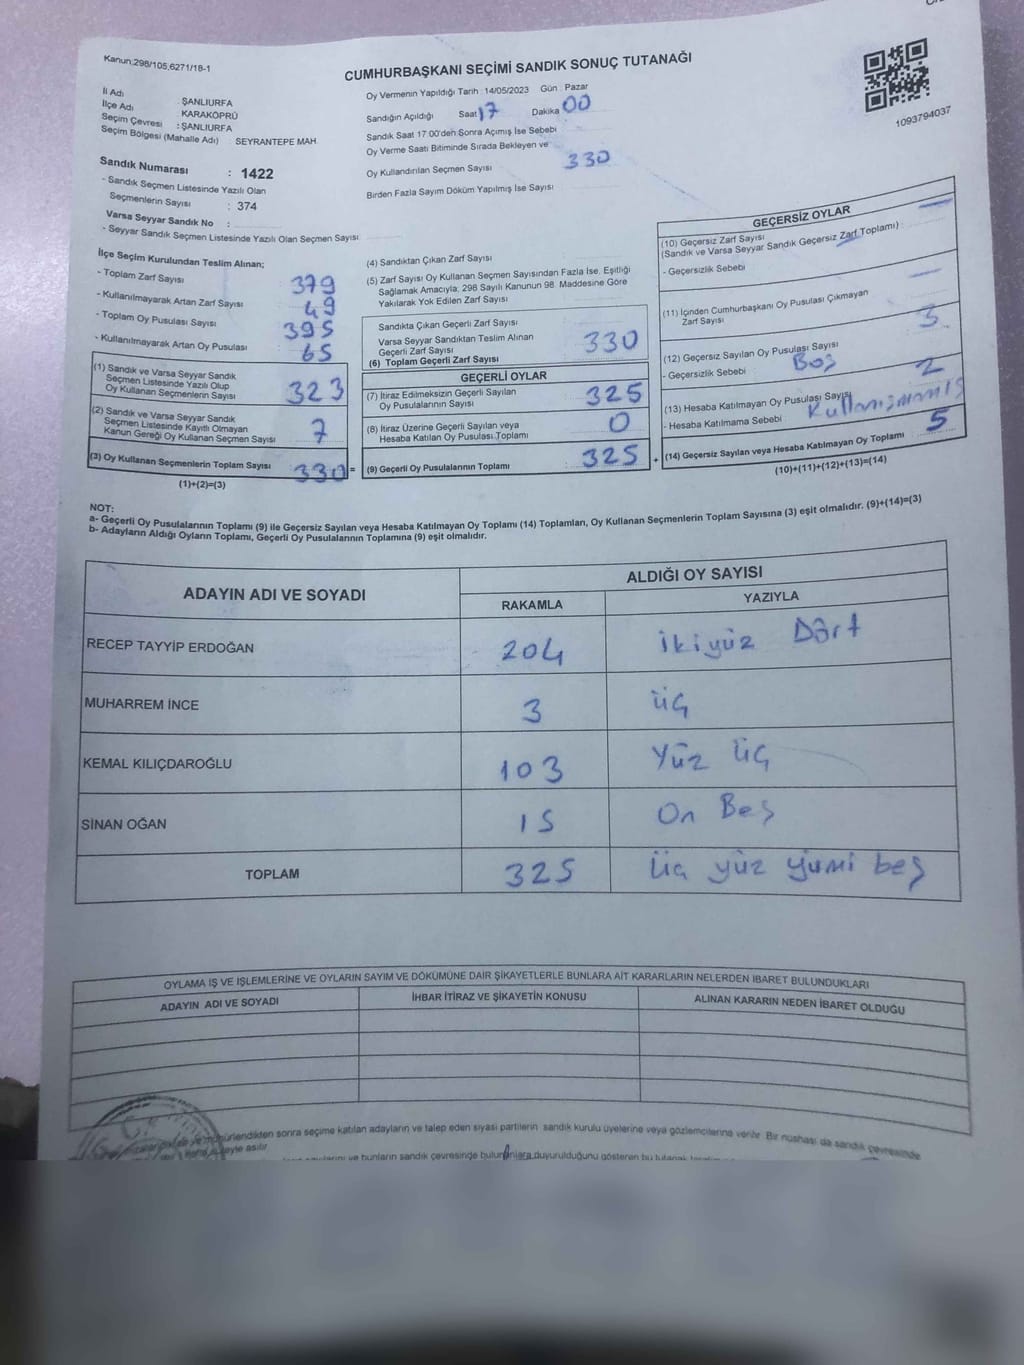 Kanun:298/105,6271/18-1
CUMHURBAŞKANI SEÇİMİ SANDIK SONUÇ TUTANAĞI
1093794037
İl Adı : ŞANLIURFA
İlçe Adı : KARAKÖPRÜ
Seçim Çevresi : ŞANLIURFA
Seçim Bölgesi (Mahalle Adı) SEYRANTEPE MAH.
Sandık Numarası : 1422
- Sandık Seçmen Listesinde Yazılı Olan
Seçmenlerin Sayısı : 374
Varsa Seyyar Sandık No :
- Seyyar Sandık Seçmen Listesinde Yazılı Olan Seçmen Sayısı
Oy Vermenin Yapıldığı Tarih : 14/05/2023 Gün : Pazar
Sandığın Açıldığı Saat 17 Dakika 00
Sandık Saat 17:00'den Sonra Açımış İse Sebebi
Oy Verme Saati Bitiminde Sırada Bekleyen ve
Oy Kullandırılan Seçmen Sayısı 330
Birden Fazla Sayım Döküm Yapılmış İse Sayısı
İlçe Seçim Kurulundan Teslim Alınan;
- Toplam Zarf Sayısı 379
- Kullanılmayarak Artan Zarf Sayısı 49
- Toplam Oy Pusulası Sayısı 395
- Kullanılmayarak Artan Oy Pusulası 65
(1) Sandık ve Varsa Seyyar Sandık
Seçmen Listesinde Yazılı Olup
Oy Kullanan Seçmenlerin Sayısı 323
(2) Sandık ve Varsa Seyyar Sandık
Seçmen Listesinde Kayıtlı Olmayan
Kanun Gereği Oy Kullanan Seçmen Sayısı 7
(3) Oy Kullanan Seçmenlerin Toplam Sayısı 330 =
(1)+(2)=(3)
(4) Sandıktan Çıkan Zarf Sayısı
(5) Zarf Sayısı Oy Kullanan Seçmen Sayısından Fazla İse, Eşitliği
Sağlamak Amacıyla; 298 Sayılı Kanunun 98. Maddesine Göre
Yakılarak Yok Edilen Zarf Sayısı
Sandıkta Çıkan Geçerli Zarf Sayısı
Varsa Seyyar Sandıktan Teslim Alınan
Geçerli Zarf Sayısı
(6) Toplam Geçerli Zarf Sayısı 330
GEÇERLİ OYLAR
(7) İtiraz Edilmeksizin Geçerli Sayılan
Oy Pusulalarının Sayısı 325
(8) İtiraz Üzerine Geçerli Sayılan veya
Hesaba Katılan Oy Pusulası Toplamı 0
(9) Geçerli Oy Pusulalarının Toplamı 325 +
GEÇERSİZ OYLAR
(10) Geçersiz Zarf Sayısı
(Sandık ve Varsa Seyyar Sandık Geçersiz Zarf Toplamı) :
- Geçersizlik Sebebi
(11) İçinden Cumhurbaşkanı Oy Pusulası Çıkmayan
Zarf Sayısı
(12) Geçersiz Sayılan Oy Pusulası Sayısı 3
- Geçersizlik Sebebi : Boş
(13) Hesaba Katılmayan Oy Pusulası Sayısı 2
- Hesaba Katılmama Sebebi Kullanılmamış
(14) Geçersiz Sayılan veya Hesaba Katılmayan Oy Toplamı 5
(10)+(11)+(12)+(13)=(14)
NOT:
a- Geçerli Oy Pusulalarının Toplamı (9) ile Geçersiz Sayılan veya Hesaba Katılmayan Oy Toplamı (14) Toplamları, Oy Kullanan Seçmenlerin Toplam Sayısına (3) eşit olmalıdır. (9)+(14)=(3)
b- Adayların Aldığı Oyların Toplamı, Geçerli Oy Pusulalarının Toplamına (9) eşit olmalıdır.
ADAYIN ADI VE SOYADI
ALDIĞI OY SAYISI
RAKAMLA YAZIYLA
RECEP TAYYİP ERDOĞAN 204 ikiyüz Dört
MUHARREM İNCE 3 üç
KEMAL KILIÇDAROĞLU 103 Yüz üç
SİNAN OĞAN 15 On Beş
TOPLAM 325 üç yüz yirmi beş
OYLAMA İŞ VE İŞLEMLERİNE VE OYLARIN SAYIM VE DÖKÜMÜNE DAİR ŞİKAYETLERLE BUNLARA AİT KARARLARIN NELERDEN İBARET BULUNDUKLARI
ADAYIN ADI VE SOYADI İHBAR İTİRAZ VE ŞİKAYETİN KONUSU ALINAN KARARIN NEDEN İBARET OLDUĞU
mühürlendikten sonra seçime katılan adayların ve talep eden siyasi partilerin sandık kurulu üyelerine veya gözlemcilerine verilir. Bir nüshası da sandık çevresinde
asılır
ve bunların sandık çevresinde bulunanlara duyurulduğunu gösteren bu tutanak